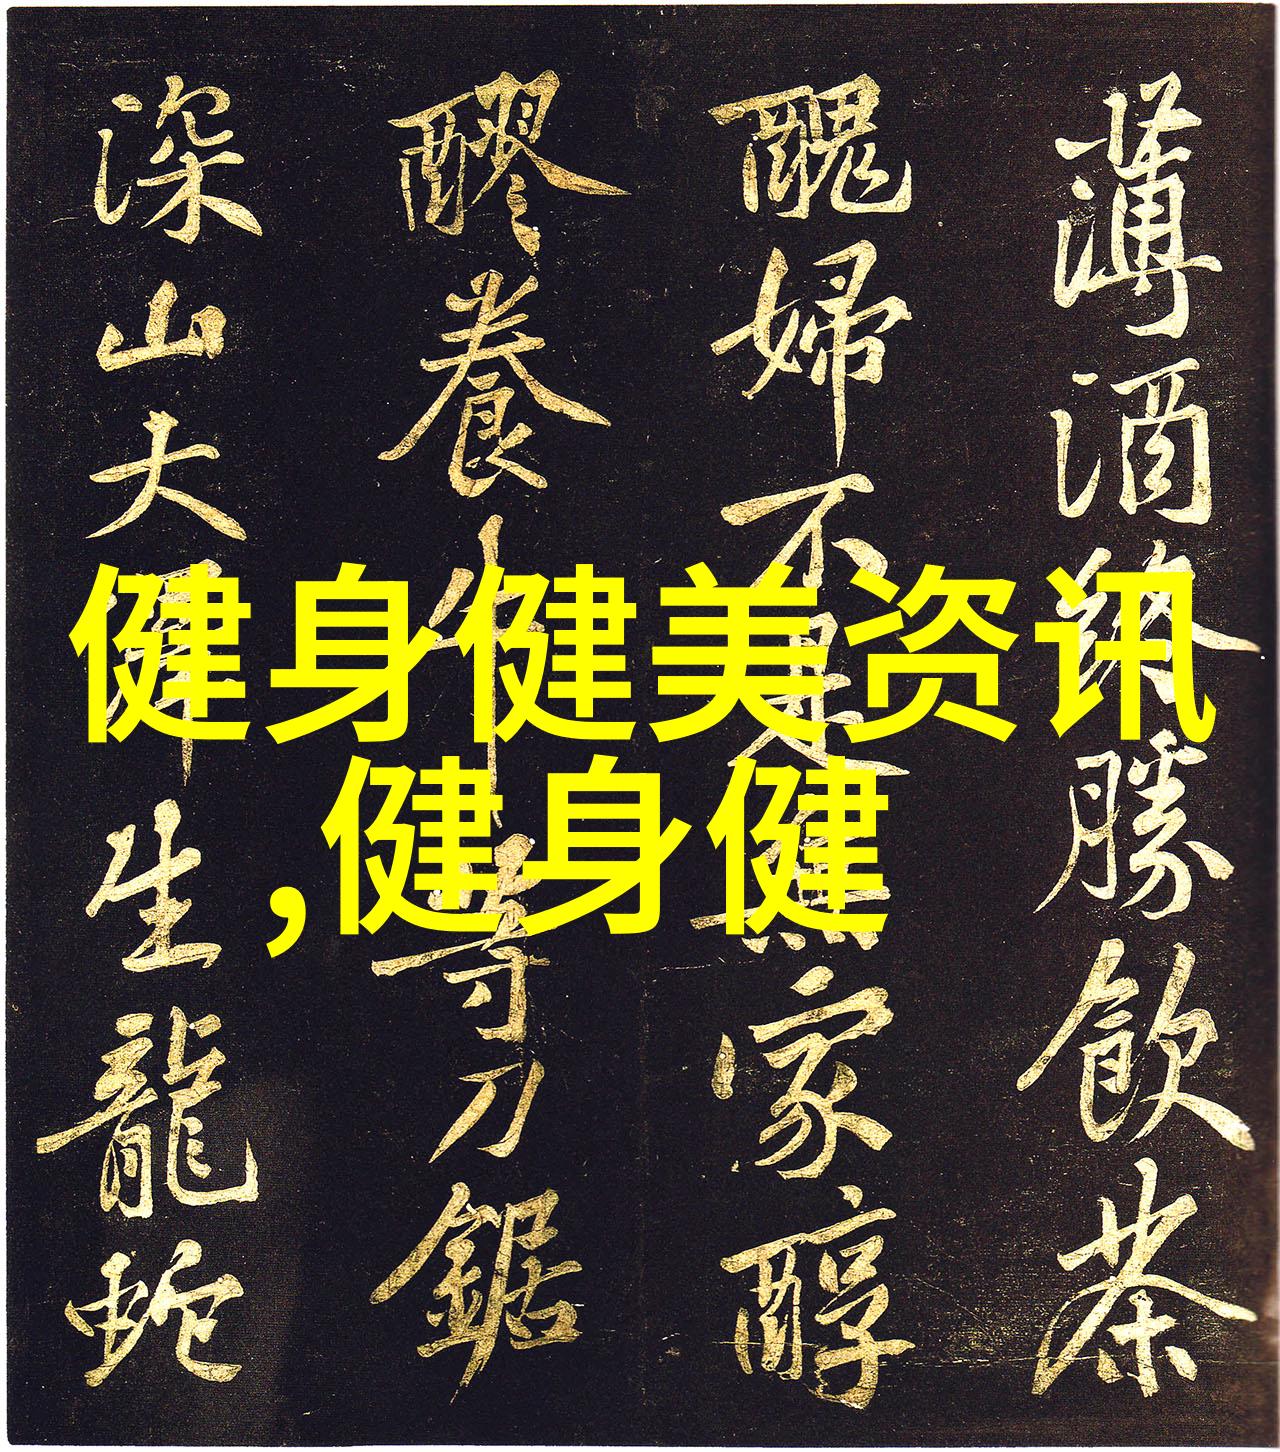 薄酒終勝飲茶
醜婦不是無家醇
醪養牛等刀鋸
深山大澤生龍蛇
健身健美资讯
,健身健